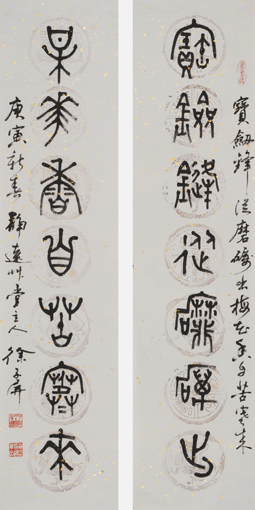 寶劍鋒從磨礪出梅花香自苦寒來
寶劍鋒從磨礪出
某華香自苦寒來
庚寅新春靜遠草堂主人徐子屏